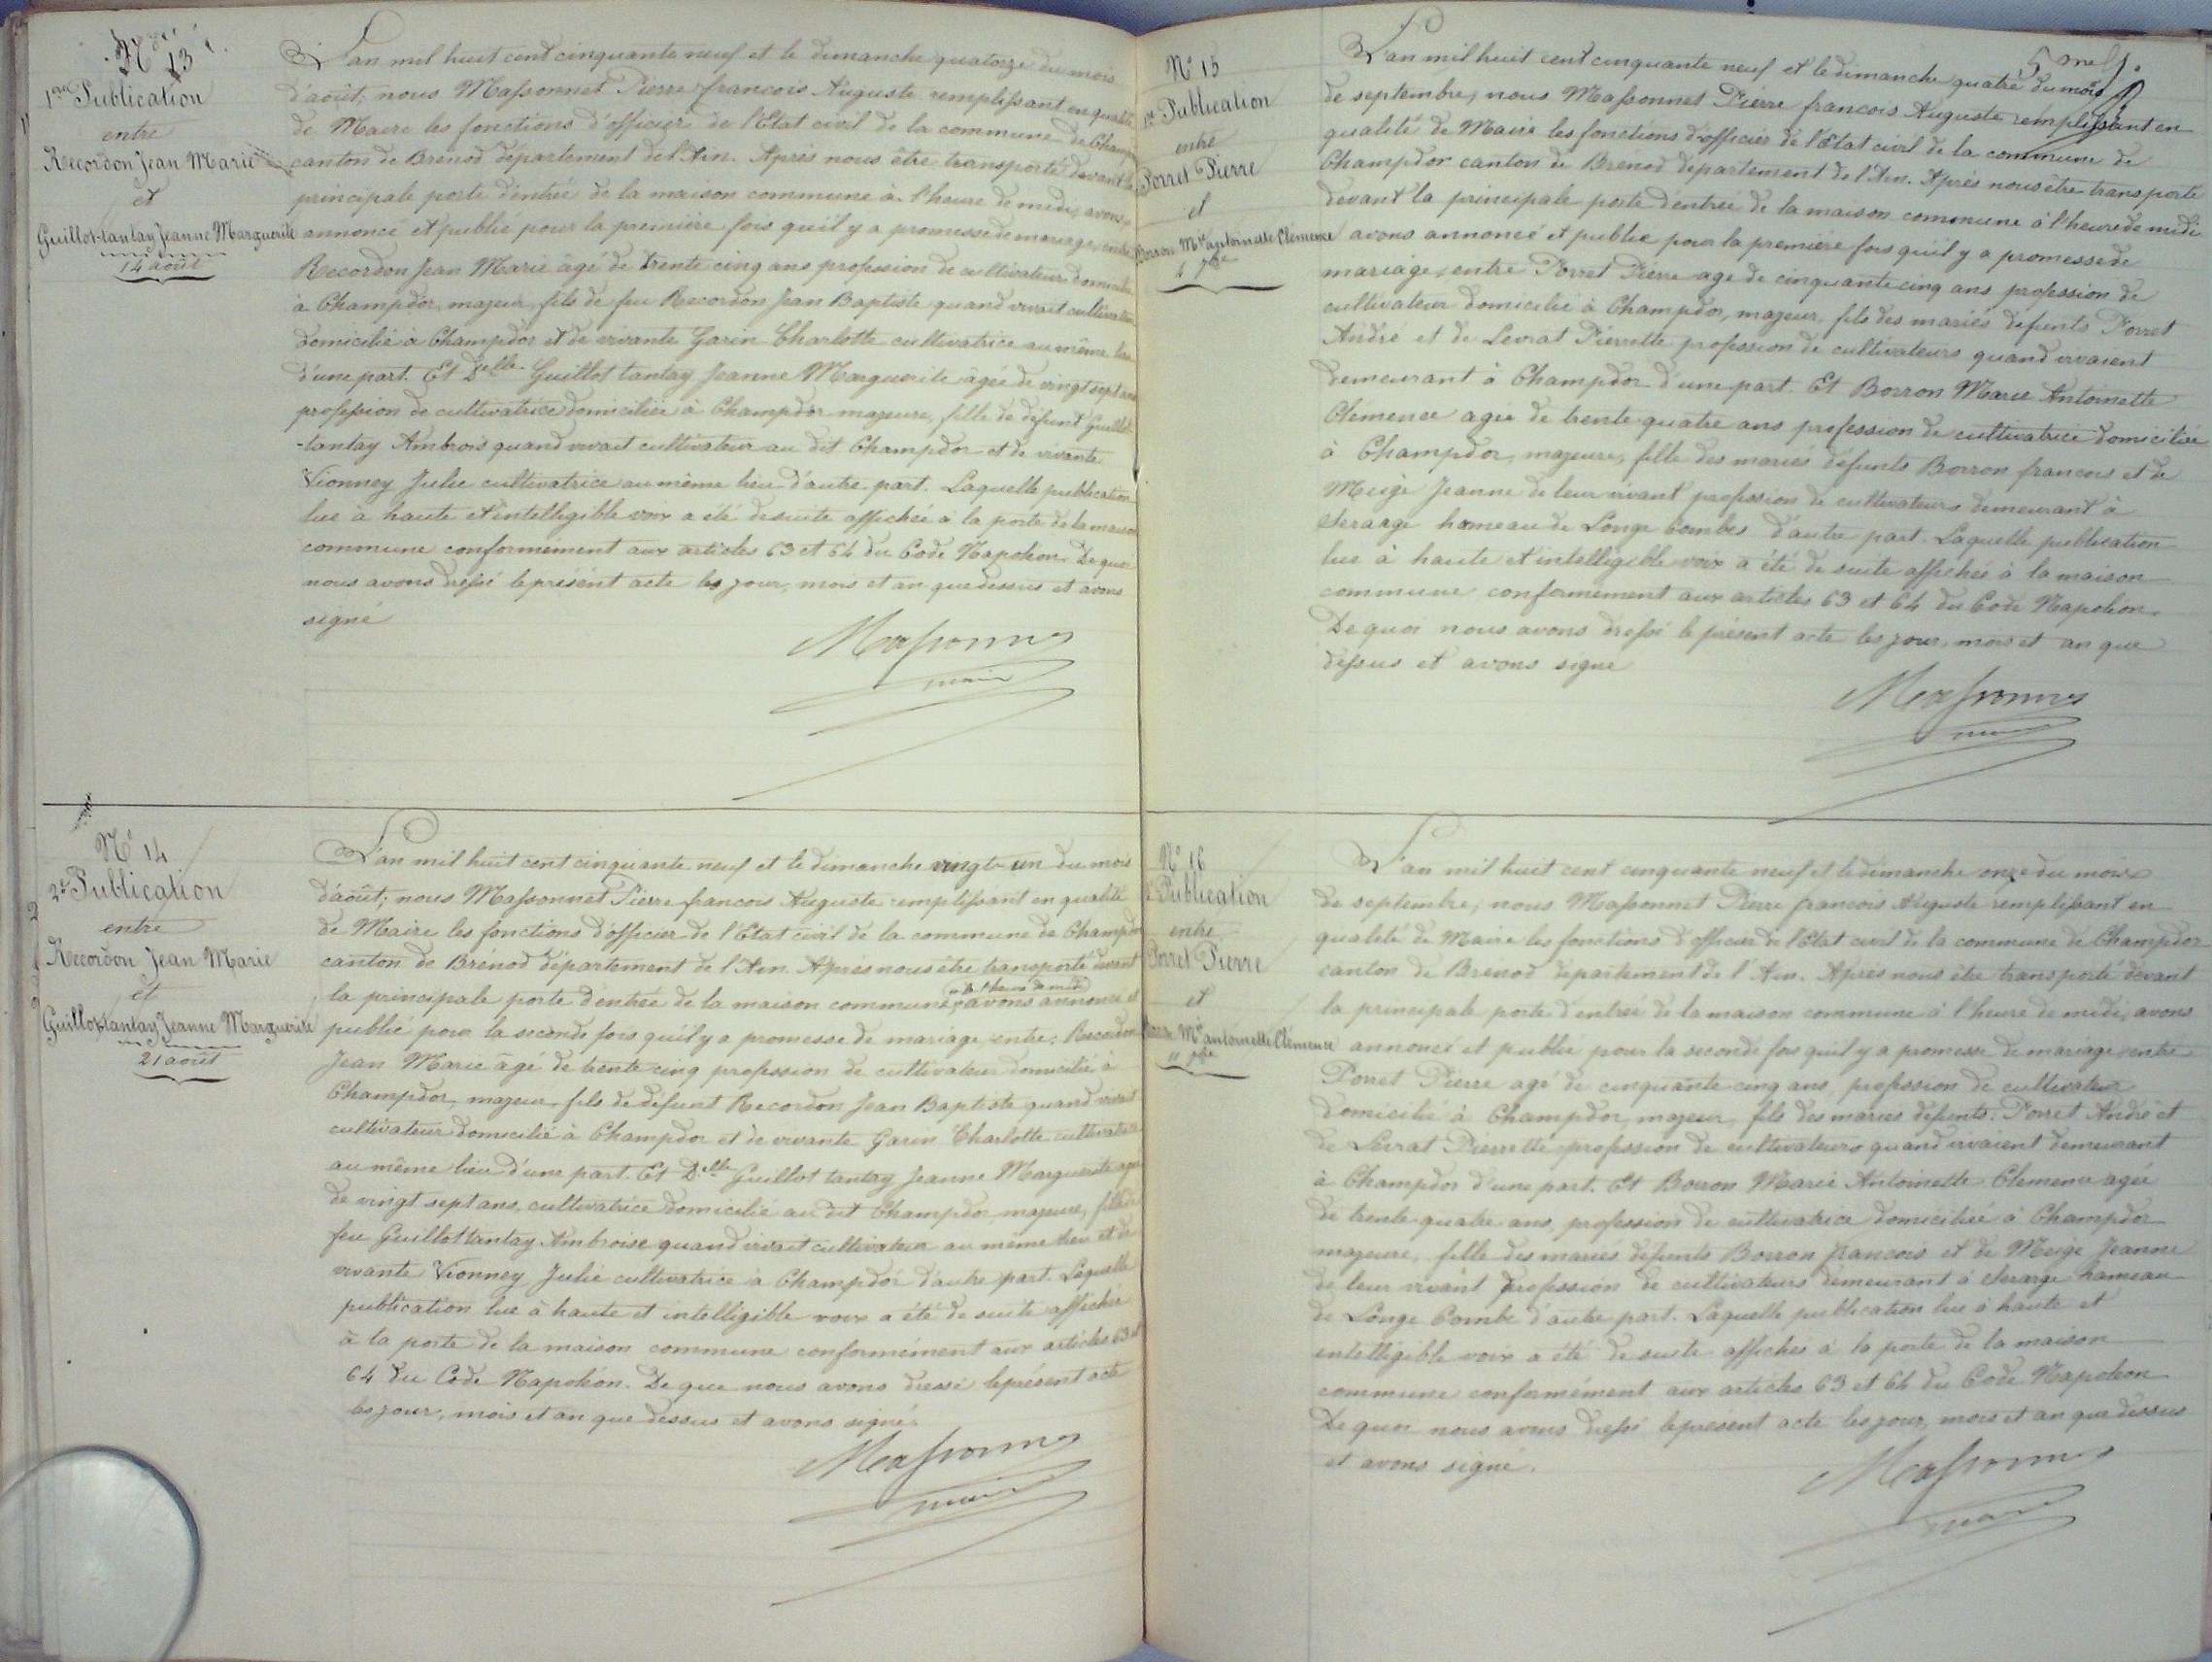 N° 13
1ère Publication
entre
Recordon Jean Marie
et
Guillot-tantay Jeanne Marguerite
14 août
L'an mil huit cent cinquante neuf et le dimanche quatorze du mois
d'août, nous Massonnet Pierre francois Auguste remplissant en qualité
de Maire les fonctions d'officier de l'Etat civil de la commune de Champdor
canton de Brénod département de l'Ain. Après nous être transporté devant la
principale porte d'entrée de la maison commune à l'heure de midi, avons
annoncé et publié pour la première fois qu'il y a promesse de mariage, entre
Recordon Jean Marie âgé de trente cinq ans profession de cultivateur domicilié
à Champdor, majeur, fils de feu Recordon Jean Baptiste quand vivait cultivateur
domicilié à Champdor et de vivante Garin Charlotte cultivatrice au même lieu
d'une part. Et Delle Guillot tantay Jeanne Marguerite âgée de vingt sept ans
profession de cultivatrice domiciliée à Champdor majeure, fille de défunt Guillot
-tantay Ambrois quand vivait cultivateur au dit Champdor et de vivante
Vionney Julie cultivatrice au même lieu d'autre part. Laquelle publication
lue à haute et intelligible voix a été de suite affichée à la porte de la maison
commune conformément aux articles 63 et 64 du Code Napoléon. De quoi
nous avons dressé le présent acte les jour, mois et an que dessus et avons
signé
Massonnet
maire
N° 14
2e Publication
entre
Recordon Jean Marie
et
Guillot tantay Jeanne Marguerite
21 août
L'an mil huit cent cinquante neuf et le dimanche vingt-un du mois
d'août; nous Massonnet Pierre francois Auguste remplissant en qualité
de Maire les fonctions d'officier de l'Etat civil de la commune de Champdor
canton de Brénod département de l'Ain. Après nous être transporté devant
la principale porte d'entrée de la maison commune, à l'heure de midi avons annoncé et
publié pour la seconde fois qu'il y a promesse de mariage, entre, Recordon
Jean Marie âgé de trente cinq profession de cultivateur domicilié à
Champdor, majeur, fils de défunt Recordon Jean Baptiste quand vivait
cultivateur domicilié à Champdor et de vivante Garin Charlotte cultivatrice
au même lieu d'une part. Et Delle Guillot tantay Jeanne Marguerite agée
de vingt sept ans, cultivatrice domicilié au dit Champdor, majeure, fille de
feu Guillot tantay Ambroise quand vivait cultivateur au même lieu et de
vivante Vionney Julie cultivatrice à Champdor d'autre part. Laquelle
publication lue à haute et intelligible voix a été de suite affichée
à la porte de la maison commune conformément aux articles 63 et
64 du Code Napoléon. De que nous avons dressé le présent acte
les jour, mois et an que dessus et avons signé.
Massonnet
maire
N° 15
1re Publication
entre
Porret Pierre
et
Borron Mie antoinette Clémence
4 7bre
L'an mil huit cent cinquante neuf et le dimanche quatre du mois
de septembre, nous Massonnet Pierre francois Auguste remplissant en
qualité de Maire les fonctions d'officier de l'Etat civil de la commune de
Champdor canton de Brenod département de l'Ain. Après nous être transporté
devant la principale porte d'entrée de la maison commune à l'heure de midi
avons annoncé et publié pour la première fois qu'il y a promesse de
mariage, entre Porret Pierre age de cinquante cinq ans profession de
cultivateur domicilié à Champdor, majeur, fils des mariés défunts Porret
André et de Levrat Pierrette profession de cultivateurs quand vivaient
demeurant à Champdor d'une part. Et Borron Marie Antoinette
Clémence agée de trente quatre ans profession de cultivatrice domiciliée
à Champdor, majeure, fille des mariés défunts Borron francois et de
Meige Jeanne de leur vivant profession de cultivateurs demeurant à
hameau de Longe Combes d'autre part. Laquelle publication
lue à haute et intelligible voix a été de suite affichée à la maison
commune conformément aux articles 63 et 64 du Code Napoléon.
De quoi nous avons dressé le présent acte les jour, mois et an que
dessus et avons signé
Massonnet
maire
N° 16
2e Publication
entre
Porret Pierre
et
Borron Mie antoinette Clémence
11 7bre
L'an mil huit cent cinquante neuf et le dimanche onze du mois
de septembre, nous Massonnet Pierre francois Auguste remplissant en
qualité de Maire les fonctions d'officier de l'Etat civil de la commune de Champdor
canton de Brenod département de l'Ain. Après nous être transporté devant
la principale porte d'entrée de la maison commune à l'heure de midi, avons
annoncé et publié pour la seconde fois qu'il y a promesse de mariage entre
Porret Pierre agé de cinquante cinq ans, profession de cultivateur
domicilié à Champdor, majeur, fils des mariés défunts Porret André et
de Levrat Pierrette profession de cultivateurs quand vivaient demeurant
à Champdor d'une part. Et Borron Marie Antoinette Clemence agée
de trente quatre ans, profession de cultivatrice domiciliée à Champdor
majeure, fille des mariés défunts Borron francois et de Meige Jeanne
de leur vivant profession de cultivateurs demeurant à hameau
de Longe Combe d'autre part. Laquelle publication lue à haute et
intelligible voix a été de suite affichée à la porte de la maison
commune conformément aux articles 63 et 64 du Code Napoléon
De quoi nous avons dressé le présent acte les jour, mois et an que dessus
et avons signé.
Massonnet
maire